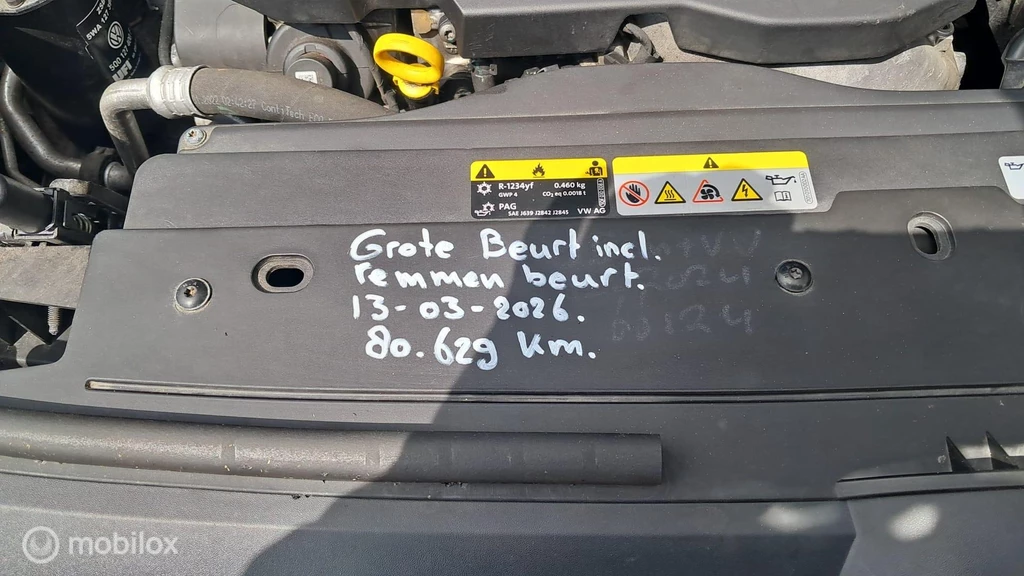 5WA 12
R-1234yf 0.460 kg
GWP 4 CO₂ eq 0.0018 t
PAG
SAE J639 J2842 J2845 VW AG
Grote Beurt incl.
remmen beurt.
13-03-2026.
80.629 km.
mobilox